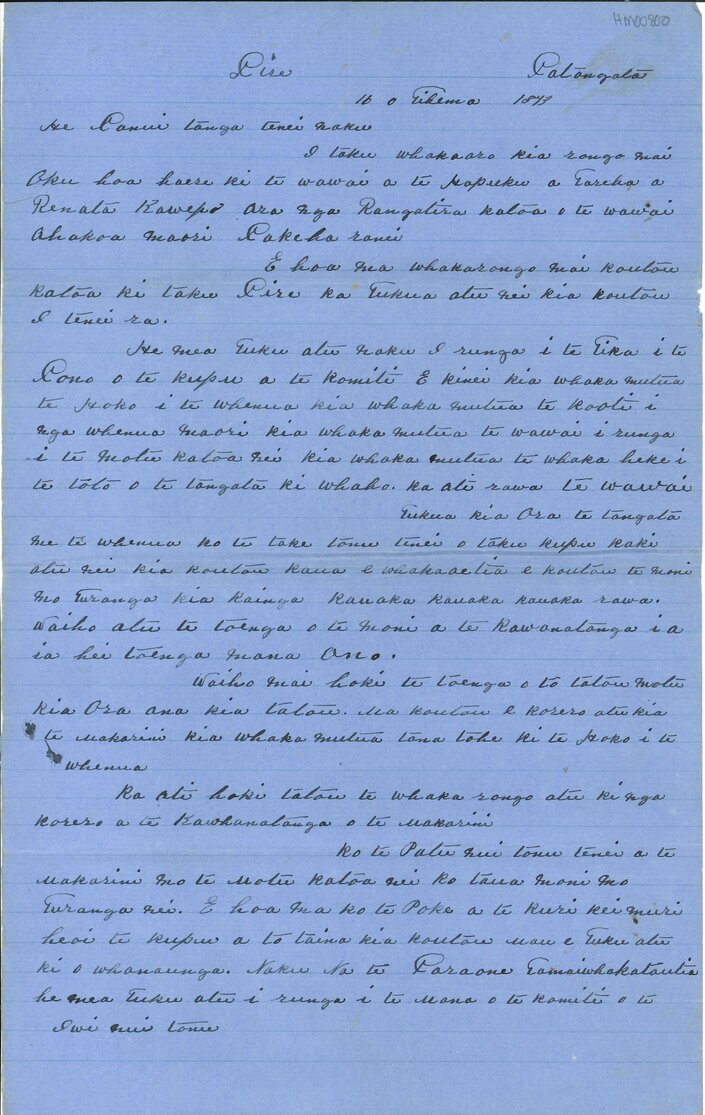 HM00800
Pire Patangata
16 o Tihema 1877
He Panui tanga tenei naku
I taku whakaaro kia rongo mai
Oku hoa haere ki te wawai a te Hapuku a Tareha a
Renata Kawepo Ara nga Rangatira katoa o te wawai
Ahakoa maori Pakeha ranei
E hoa ma whakarongo mai koutou
katoa ki taku Pire ka Tukua atu nei kia koutou
I tenei ra.
He mea Tuku atu naku I runga i te Tika i te
Pono o te kupu a te komiti E kinei kia whaka mutua
te Hoko i te whenua kia whaka mutua te kooti i
nga whenua maori kia whaka mutua te wawai i runga
i te motu katoa nei kia whaka mutua te whaka heke i
te toto o te tangata ki whaho. ka ati rawa te wawai
Tukua kia Ora te tangata
me te whenua ko te take tonu tenei o taku kupu kaki
atu nei kia koutou kaua e whakaaetia e koutou te moni
mo Turanga kia kainga kauaka kauaka kauaka rawa.
Waiho atu te toenga o te moni a te Kawanatanga i a
ia hei toenga mana Ono.
Waiho mai hoki te toenga o to tatou motu
kia Ora ana kia tatou. Ma koutou e korero atu kia
te Makarini kia whaka mutua tana tohe ki te Hoko i te
whenua
Ka ati hoki tatou te whaka rongo atu ki nga
korero a te Kawhanatanga o te Makarini
ko te Patu nui tonu tenei a te
Makarini mo te Motu katoa nei ko taua moni mo
Turanga nei. E hoa ma ko te Poke a te kuri kei muri
heoi te kupu a to taina kia koutou mau e Tuku atu
ki o whanaunga. Naku Na te Paraone Tamaiwhakatautia
he mea Tuku atu i runga i te Mana o te komiti o te
Iwi nui tonu